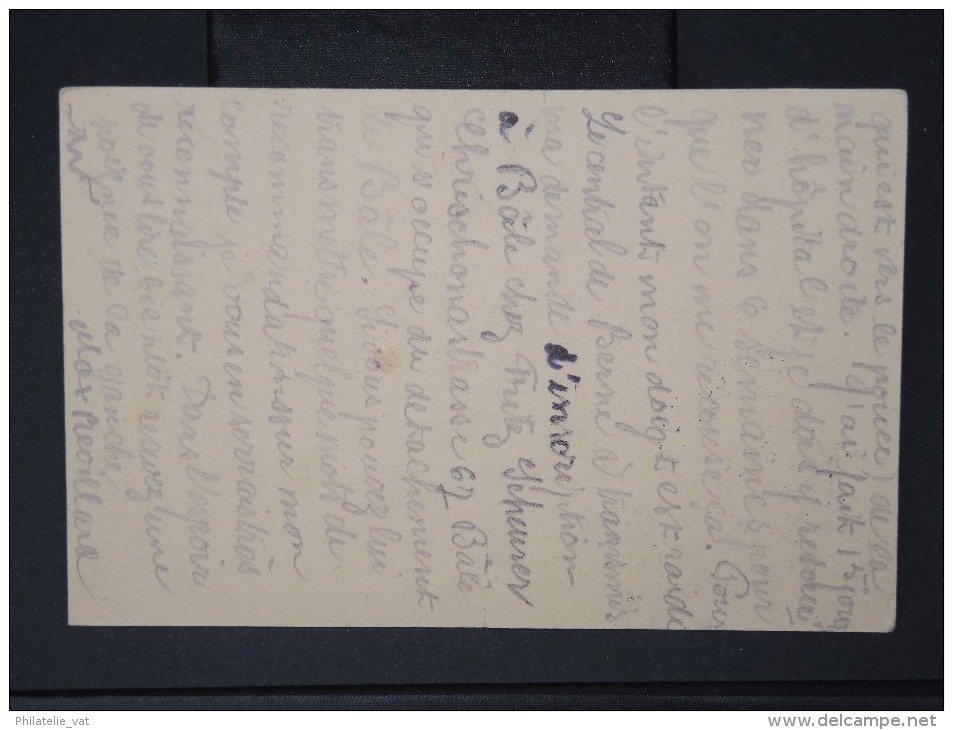 qui est vers le pouce) de la
main droite. J'ai fait 15 jours
d'hôpital et je dois y retour
ner dans 6 semaines pour
que l'on me recouse ça. Pour
l'instant mon doigt est raide
Le central de Berne à transmis
ma demande d'inscription
à Bâle chez Fritz Scheurer
Chrischonastrasse 67 Bâle
qui s'occupe du detachement
de Bâle. Si vous pouvez lui
transmettre quelques mots de
recommandation sur mon
compte je vous en serrai très
reconnaissant. Dans l'espoir
de vous lire bientôt recevez une
poignée de la gauche
Max
Philatelie_vat
http://www.delcampe.net